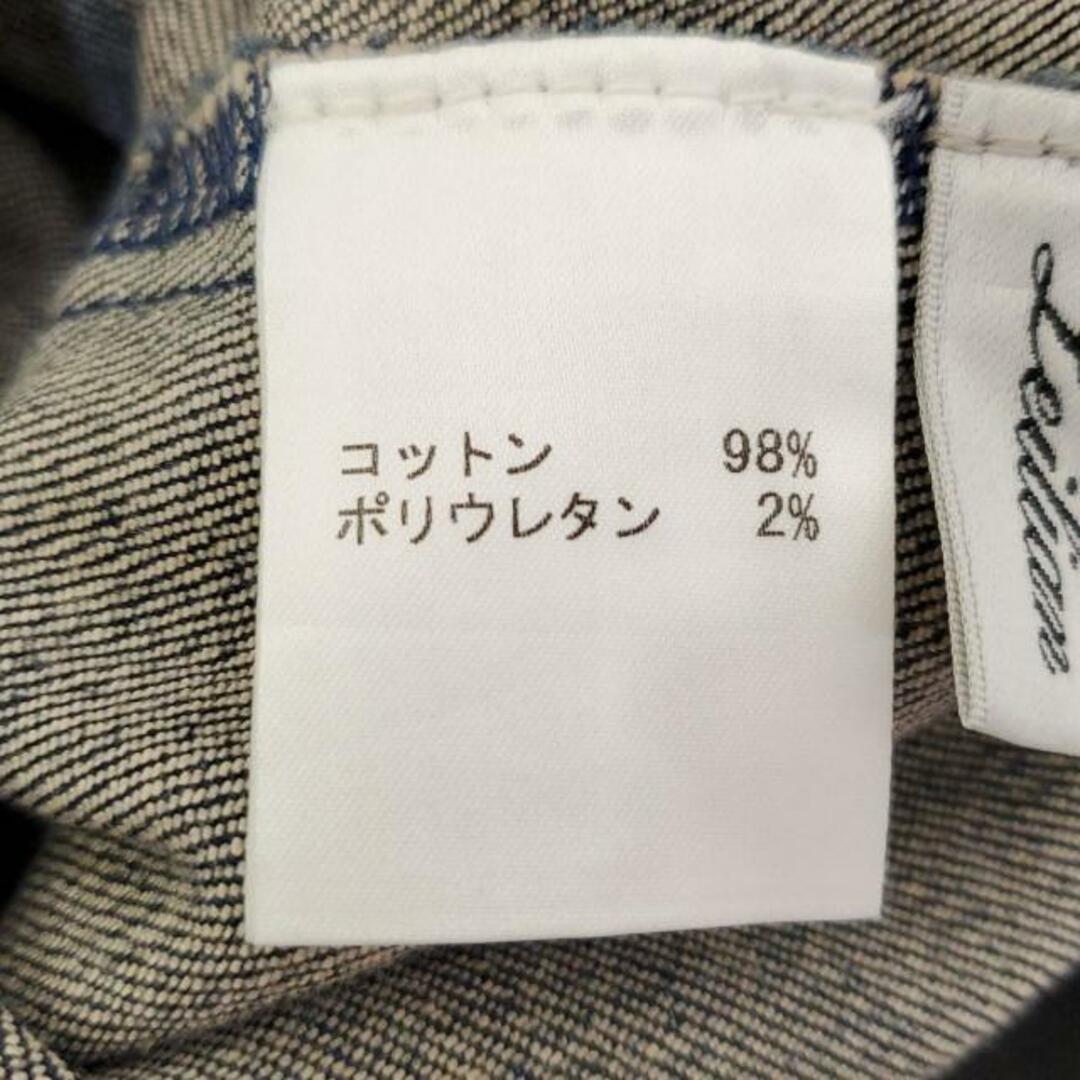 コットン 98%
ポリウレタン 2%
Leilian